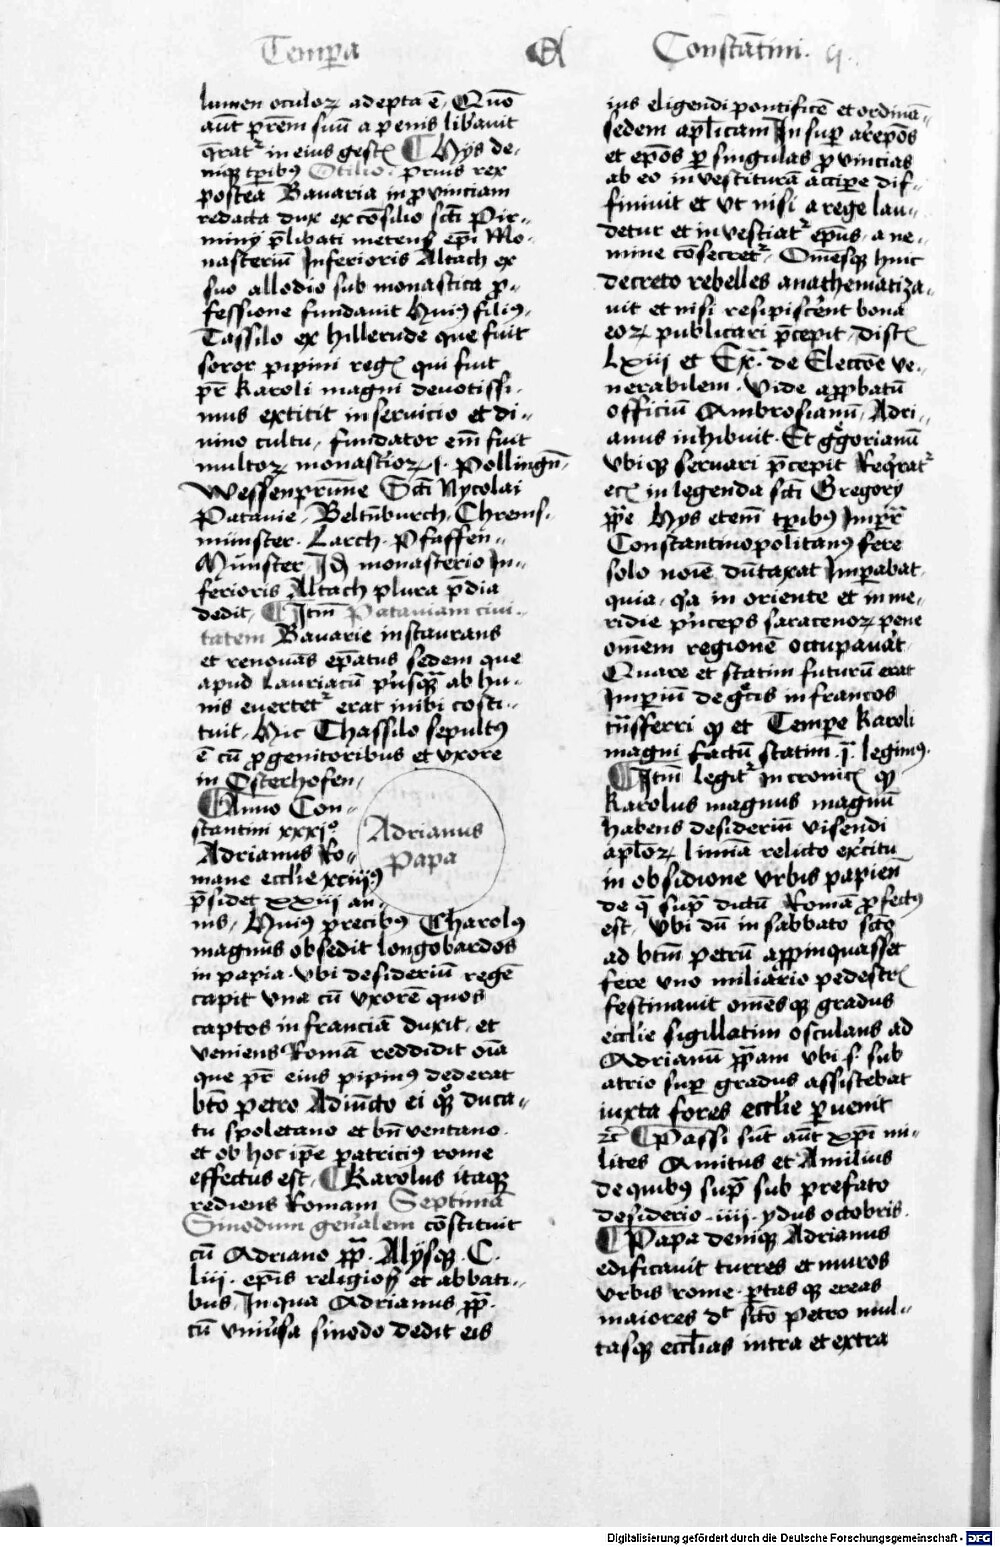 Tempora Et Constantini. q.
lumen oculoꝝ adepta ē, Quō
aūt pr̄em suū a penis libauit
q̄rat᷑ in eius gestꝭ ¶ Hys de-
niqꝫ tp̄ibꝰ Otilio. prius rex
posteā Bauaria in ꝓuinciam
redacta dux ex cōsilio sc̄ti Pir-
miny p̄libati metenꝭ ep̄i Mo-
nasteriū Inferioris Altach ex
suo allodio sub monastica ꝓ-
fessione fundauit Huiꝰ filiꝰ
Tassilo ex hilterude que fuit
soror pipini regꝭ qui fuit
pr̄ Karoli magni deuotissi-
mus extitit in seruicio et di-
uino cultu, fundator em̄ fuit
multoꝝ monast'ioꝝ .i. Pollingn̄,
Wessenprūne Sc̄ti Nycolai
Patauie, Beltn̄burch, Chrems-
münster. Larch. Pfaffen-
Münster, Itꝫ monasterio In-
ferioris Altach plura p̄dia
dedit, ¶ Itm̄ Patauiam ciui-
tatem Bauarie instaurans
et renouās ep̄atus sedem que
apud Lauriacū p'usqꝫ ab hu-
nis euertet᷑ erat inibi cōsti-
tuit, Hic Thassilo sepultꝰ
ē cū ꝓgenitoribus et vxore
in Osterhofen,
¶ Anno Con-
stantini xxxjº
Adrianus Ro-
mane eccl̄ie xciiijꝰ
p̄sidet xxiij an-
nis, Huiꝰ precibꝰ Charolꝰ
Adrianus
Papa
magnus obsedit longobardos
in papia. vbi desideriū regē
capit vna cū vxorē quos
captos in franciā duxit, et
veniens Romā reddidit oīa
que pr̄ eius pipinꝰ dederat
bt̄o petro Adiūcto ei qꝫ duca-
tu spoletano et bn̄ventano.
et ob hoc ip̄e patriciꝰ rome
effectus est, ¶ Karolus itaqꝫ
rediens Romam Septimā
Sinodum gen̄alem cōstituit
cū Adriano pp̄. Alysqꝫ. C.
liii. ep̄is religiosꝭ et abbati-
bus, In qua Adrianus pp̄.
cū vniu'sa sinodo dedit eis
ius eligendi pontificē et ordinā-
sedem apl̄icam In sup ar̄ep̄os
et ep̄os ꝑ singulas ꝓuincias
ab eo inuestiturā accipe dif-
finiuit et vt nisi a rege lau-
detur et inuestiat᷑ ep̄us, a ne-
mine cōsecret᷑. Om̄esqꝫ huic
decreto rebelles anathematiza-
uit et nisi resipisc̄ent bona
eoꝝ publicari p̄cepit, Distꝭ
Lxiij et Ex̄. de Elecc̄oe ve-
nerabilem. Vide app̄batū
officiū Ambrosianū, Adri-
anus inhibuit. Et g̊gorianū
vbiqꝫ seruari p̄cepit Reqrat᷑
ec̄ꝭ in legenda sc̄ti Gregory
pp̄e Hys etem̄ tp̄ibꝰ Impr̄
Constantinopolitanꝰ fere
solo noīe dūtaxat Impabat.
quia, q'a in oriente et in me-
ridie p'nceps saracenoꝝ pene
om̄em regionē occupauat.
Quare et statim futurū erat
Imperiū de g̊cis in francos
tr̄nsferri qꝫ et Tempe Karoli
magni factū statim .i. legimꝰ.
¶ Itm̄ legit᷑ In cronicꝭ qꝫ
Karolus magnus magnū
habens desideriū visendi
apl̄oꝝ. limiā relicto ex'citu
in obsidione vrbis papien̄
de q̄ sup̄ dictū Romā ꝓfectꝰ
est, vbi dū in sabbato sc̄to
ad bt̄m petrū appinquasset
fere vno miliario pedestrꝭ
festinauit om̄esqꝫ gradus
eccl̄ie sigillatim osculans ad
Adrianū pp̄am vbi s. sub
atrio sup gradus assistebat
iuxta fores eccl̄ie ꝑuenit
ꝛc̄ ¶ Passi sūt aūt xp̄i mi-
lites Amitus et Amilius
de quibꝰ sup̄ sub prefato
desiderio .iiij. ydus octobris.
¶ Papa deniqꝫ Adrianus
edificauit turres et muros
vrbis rome. portas qꝫ ereas
maiores dt̄ sc̄to petro mul-
tasqꝫ eccl̄ias intra et extra
Digitalisierung gefördert durch die Deutsche Forschungsgemeinschaft - DFG